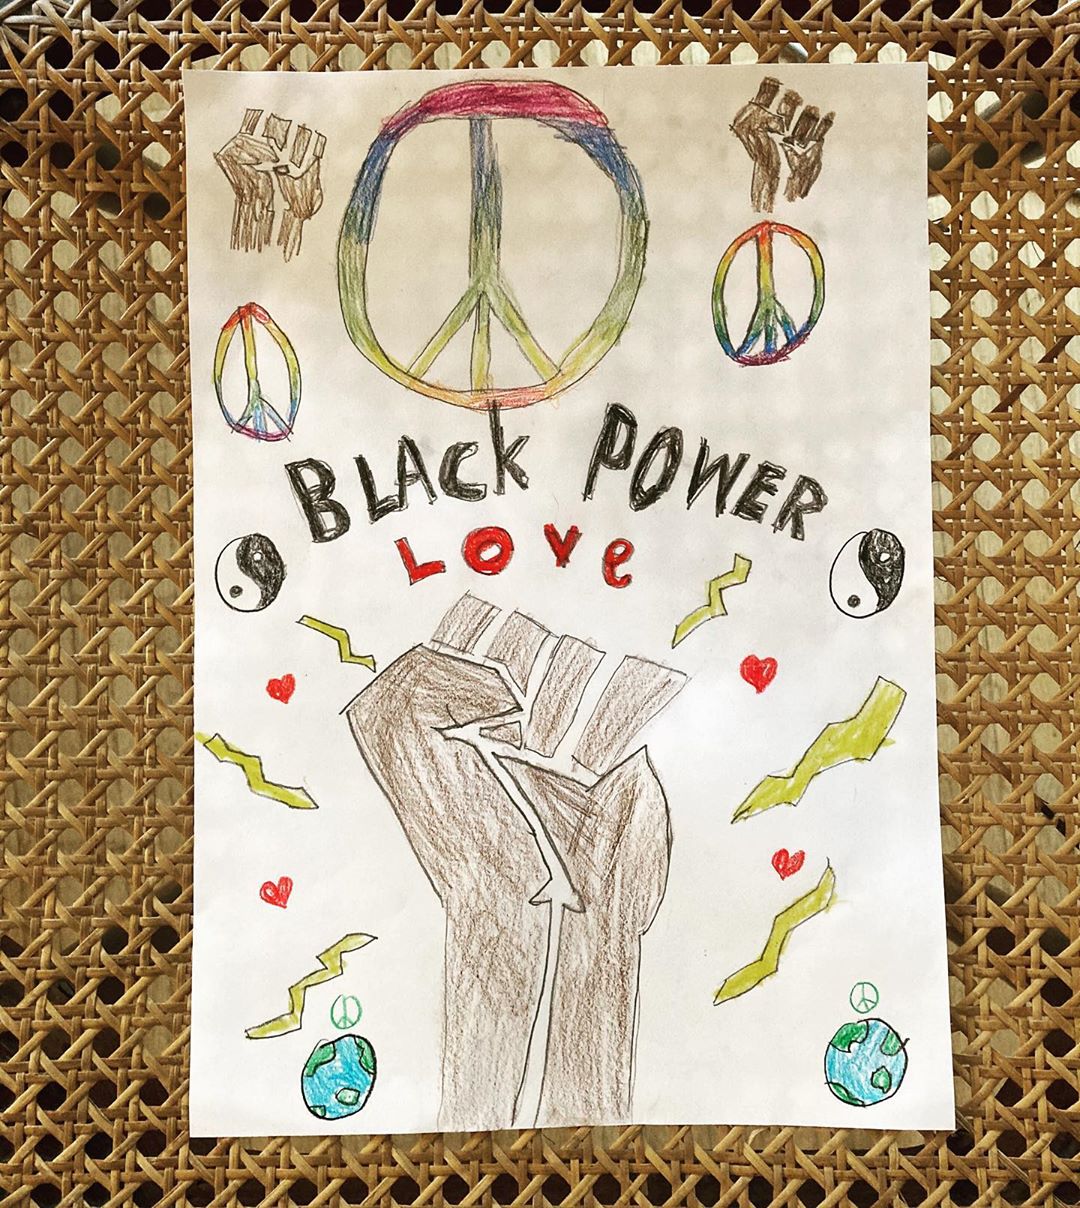 BLACK POWER
LOVe